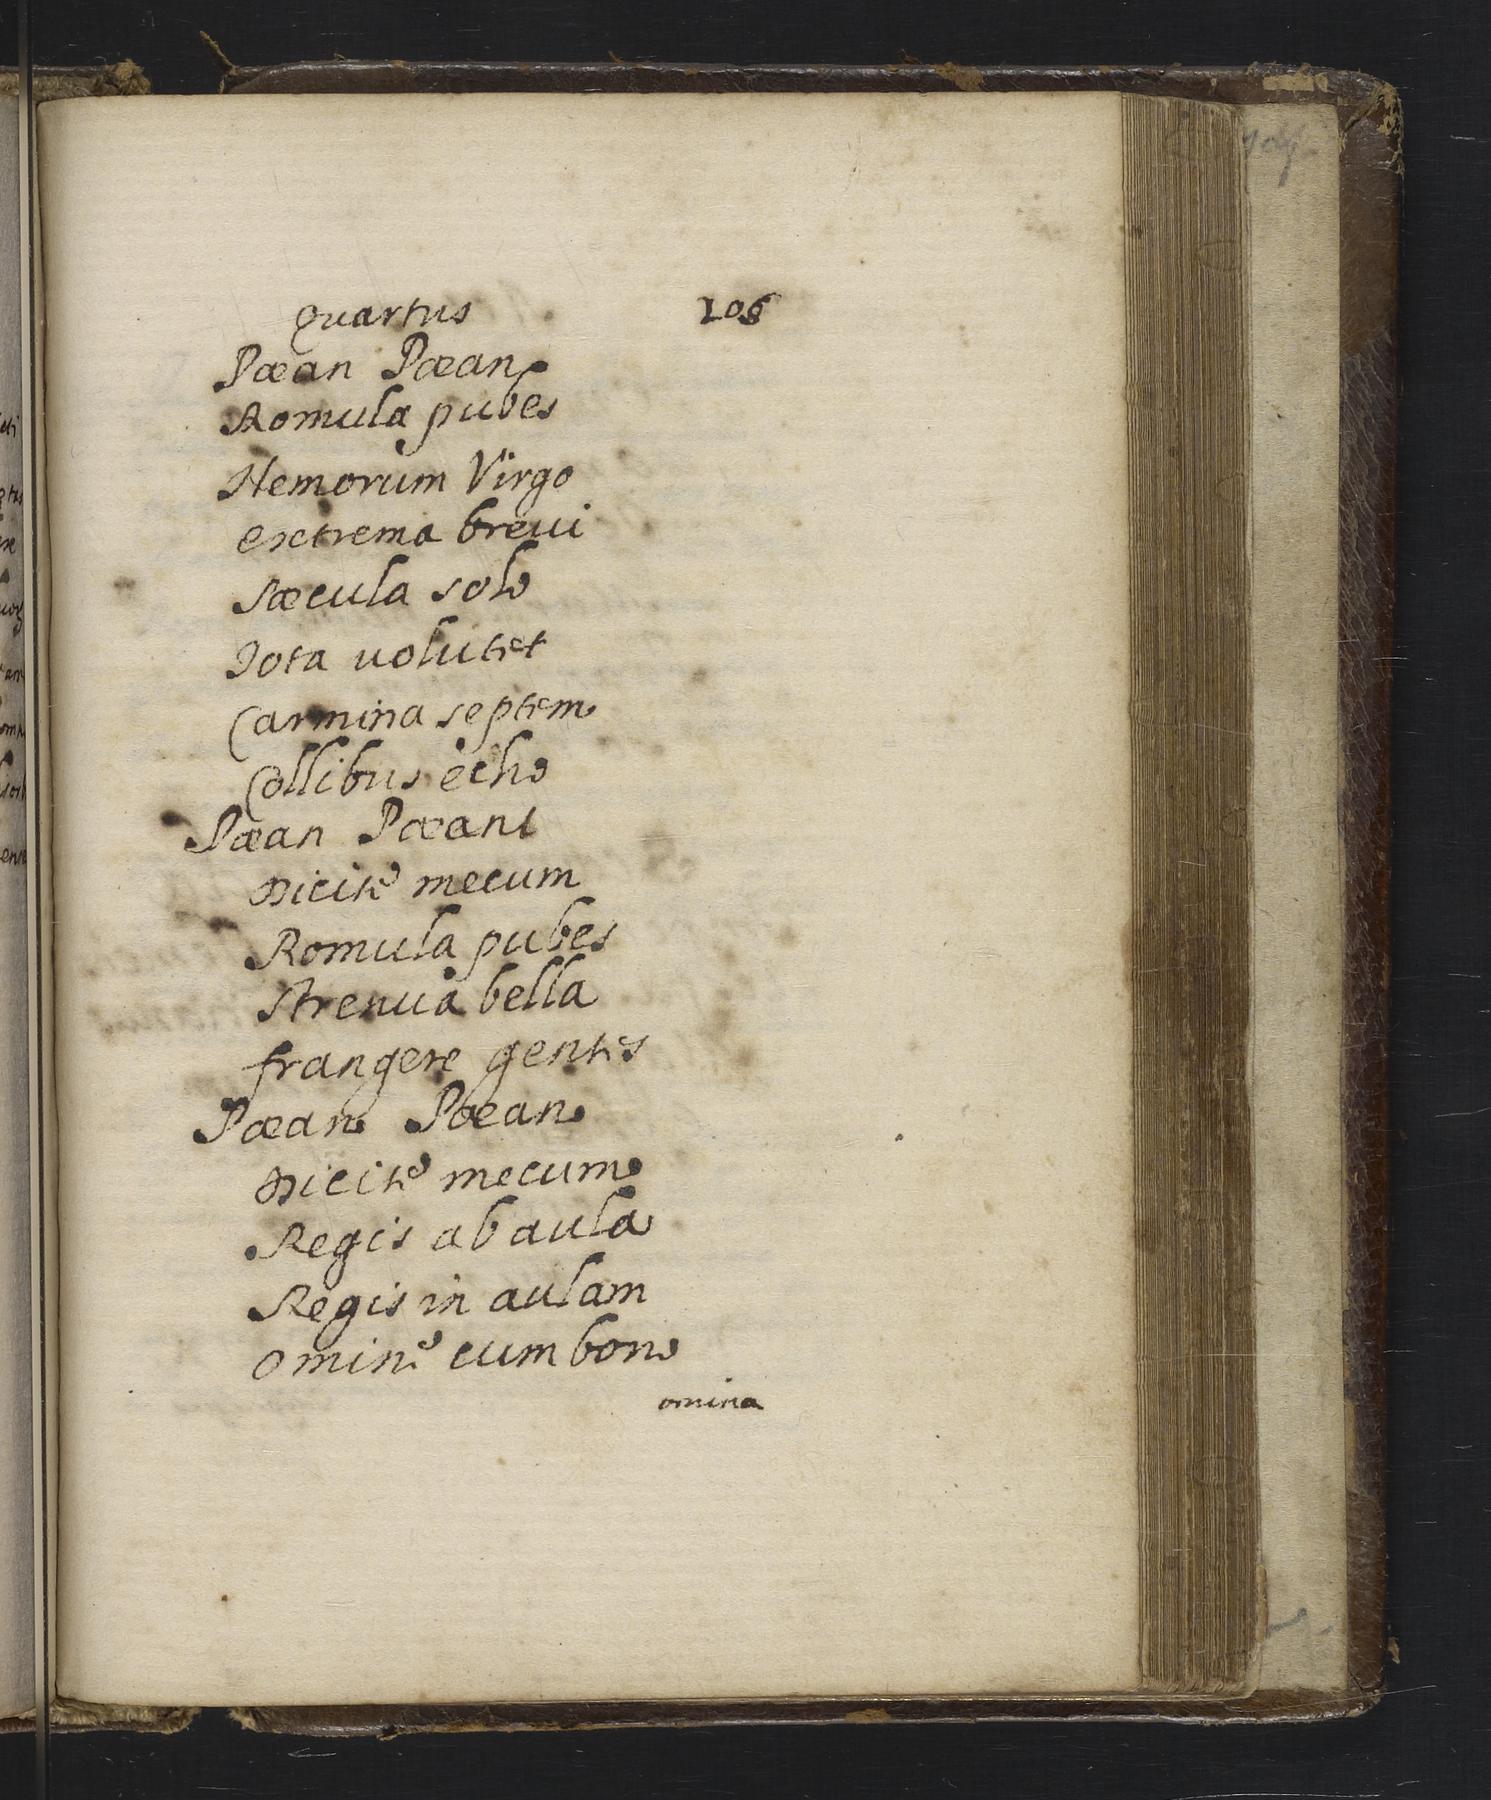 Quartus 108
Pæan Pæan
Romula pubes
Nemorum Virgo
extrema breui
sæcula solo
Iota uolutet
Carmina septem
Collibus echo
Pæan Pæant
Dicite mecum
Romula pubes
strenua bella
frangere gentes
Pæan Pæan
Dicite mecum
Regis ab aula
Regis in aulam
Omine cum bono
omina